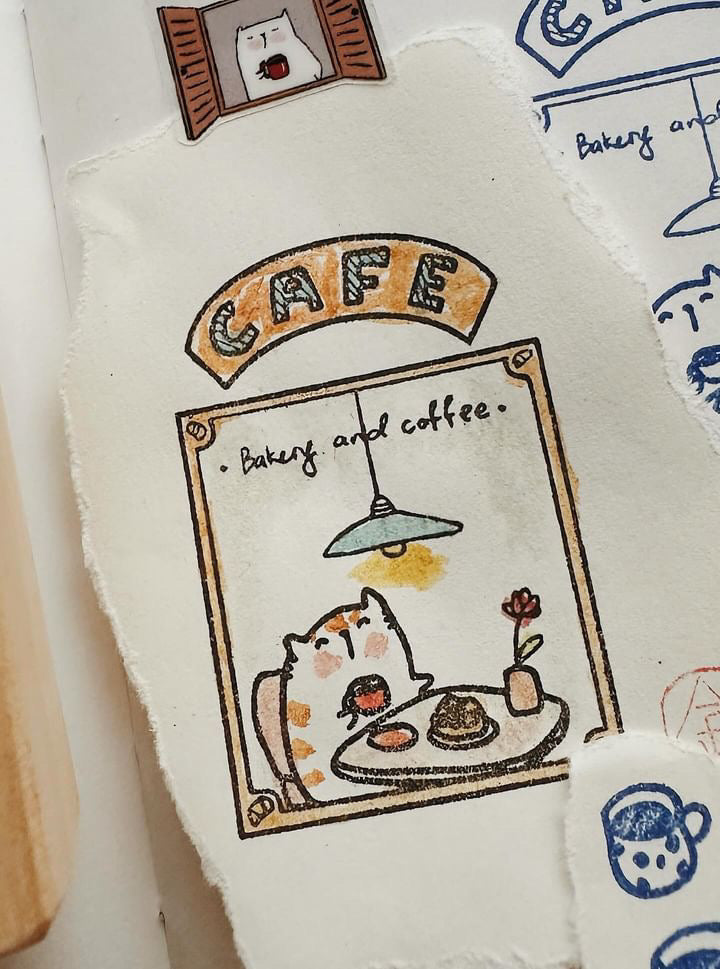 CAFE
· Bakery and coffee ·
Bakery and